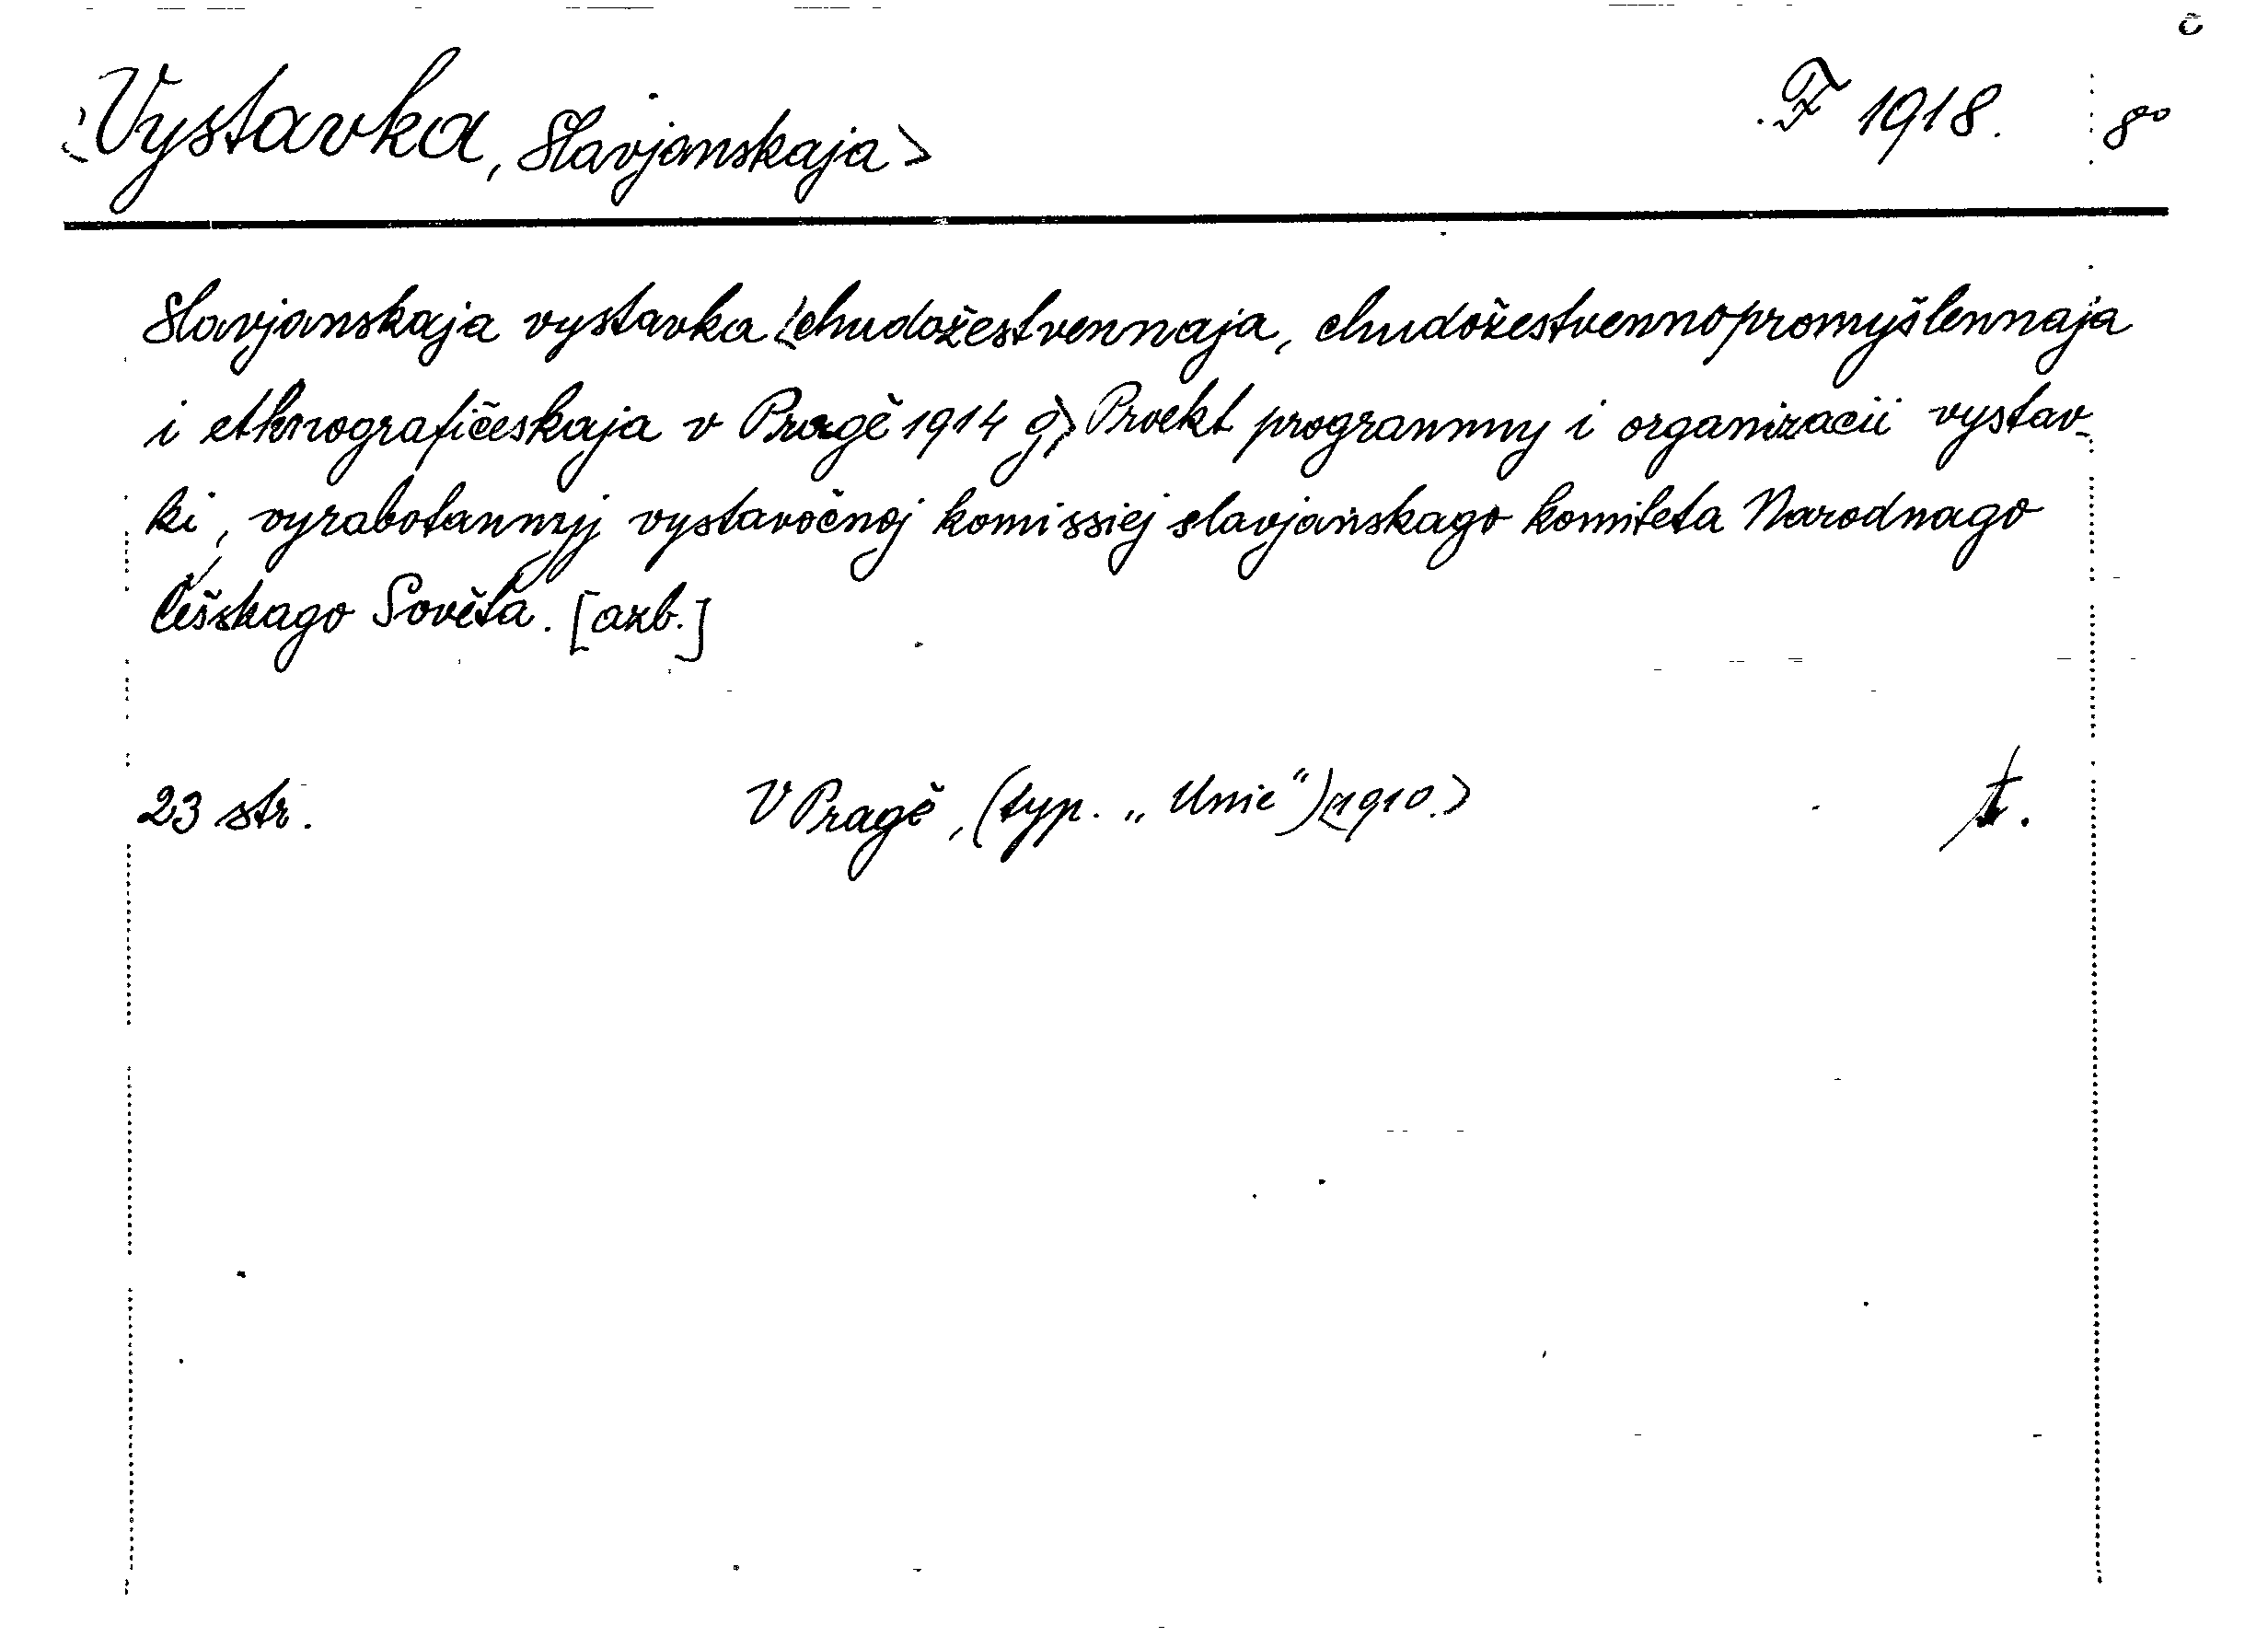 <Vystavka, Slavjanskaja> F 1918. 8°
Slavjanskaja vystavka <chudožestvennaja, chudožestvennopromyšlennaja
i ethnografičeskaja v Pragě 1914 g.> Proekt programmy i organizacii vystav-
ki, vyrabotannyj vystavočnoj komissiej slavjanskago komiteta Narodnago
Češskago Sověta. [azb.]
23 str. V Pragě, (typ. „Unie“) <1910.> t.